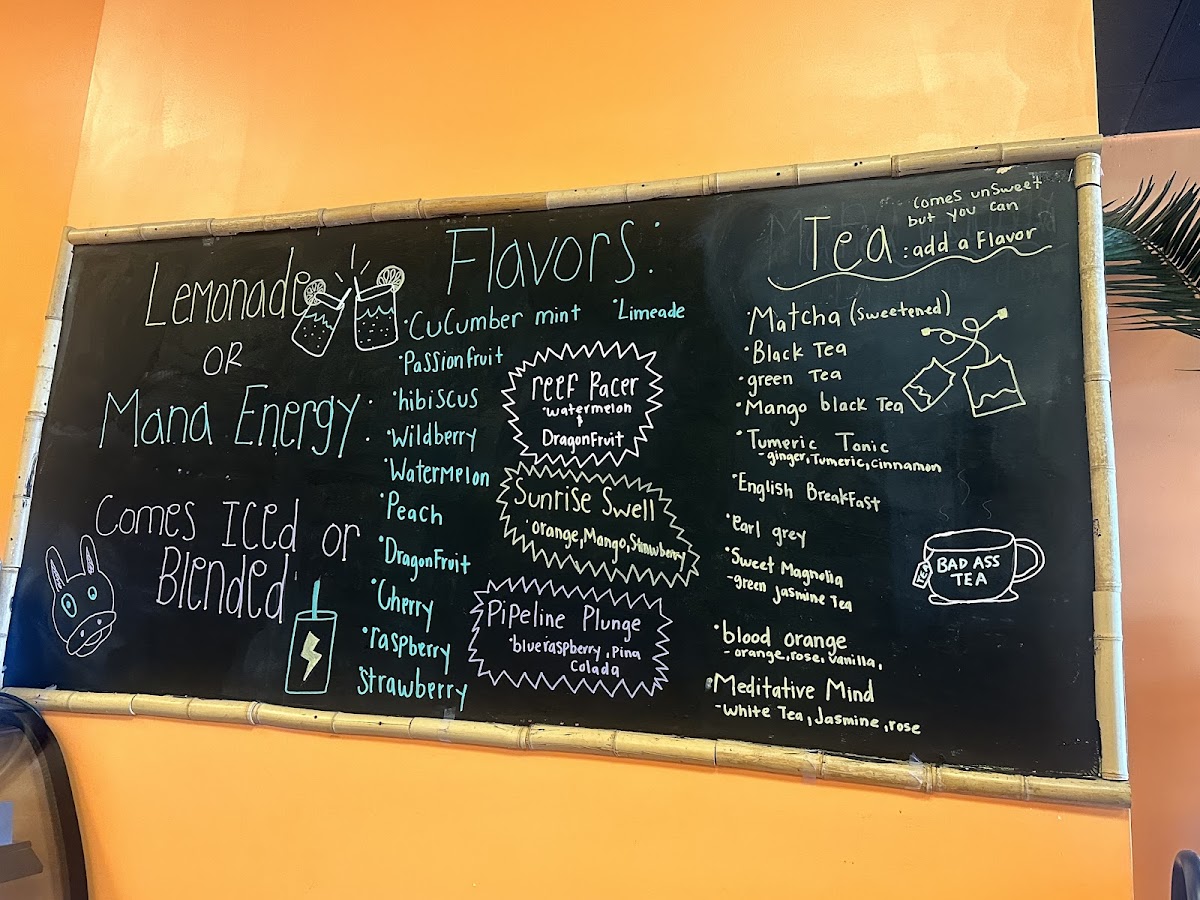 Lemonade
OR
Mana Energy:
Comes Iced or
Blended
Flavors:
•CuCumber mint
•Limeade
•Passionfruit
•hibiscus
•Wildberry
•Watermelon
•Peach
•DragonFruit
•Cherry
•raspberry
Strawberry
reef racer
•watermelon
&
DragonFruit
Sunrise Swell
•orange, Mango, Strawberry
Pipeline Plunge
•blue raspberry, Pina
Colada
Tea
Comes unSweet
but you can
: add a Flavor
•Matcha (Sweetened)
•Black Tea
•green Tea
•Mango black Tea
•Tumeric Tonic
-ginger, Tumeric, Cinnamon
•English BreakFast
•Earl grey
•Sweet Magnolia
-green Jasmine Tea
•blood orange
-orange, rose, vanilla,
•Meditative Mind
-White Tea, Jasmine, rose
TEA
BAD ASS
TEA